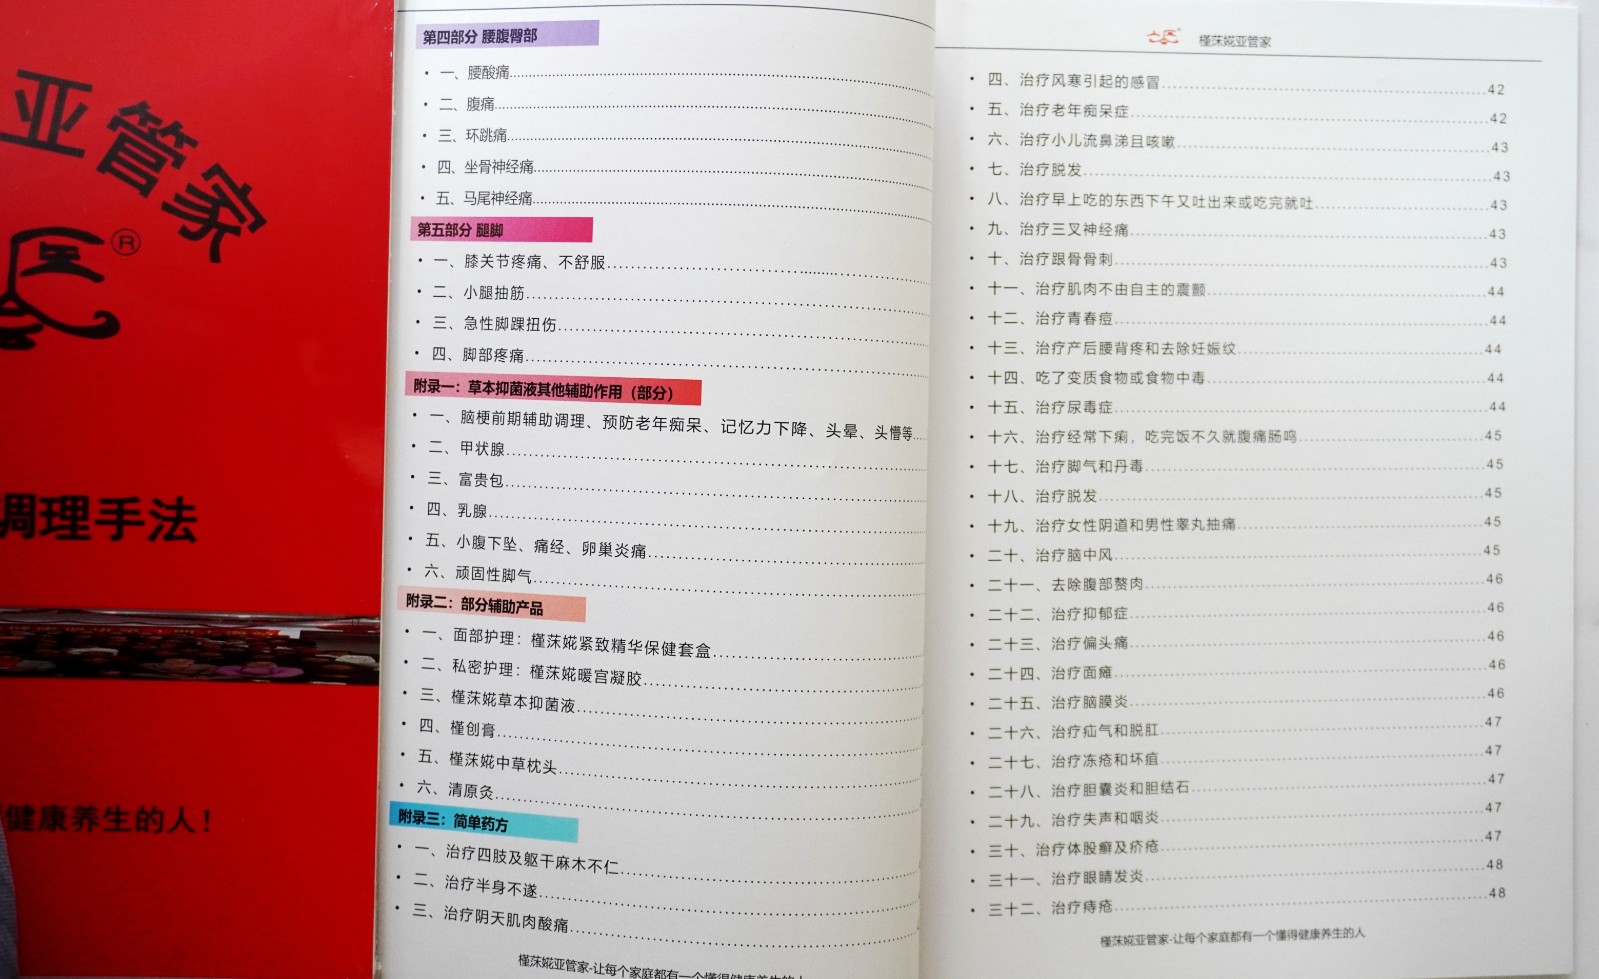 亚管家
®
调理手法
健康养生的人！
第四部分 腰腹臀部
• 一、腰酸痛
• 二、腹痛
• 三、环跳痛
• 四、坐骨神经痛
• 五、马尾神经痛
第五部分 腿脚
• 一、膝关节疼痛、不舒服
• 二、小腿抽筋
• 三、急性脚踝扭伤
• 四、脚部疼痛
附录一：草本抑菌液其他辅助作用（部分）
• 一、脑梗前期辅助调理、预防老年痴呆、记忆力下降、头晕、头懵等
• 二、甲状腺
• 三、富贵包
• 四、乳腺
• 五、小腹下坠、痛经、卵巢炎痛
• 六、顽固性脚气
附录二：部分辅助产品
• 一、面部护理：槿莯婲紧致精华保健套盒
• 二、私密护理：槿莯婲暖宫凝胶
• 三、槿莯婲草本抑菌液
• 四、槿创膏
• 五、槿莯婲中草枕头
• 六、清原灸
附录三：简单药方
• 一、治疗四肢及躯干麻木不仁
• 二、治疗半身不遂
• 三、治疗阴天肌肉酸痛
槿莯婲亚管家-让每个家庭都有一个懂得健康养生的人
槿莯婲亚管家
• 四、治疗风寒引起的感冒 42
• 五、治疗老年痴呆症 42
• 六、治疗小儿流鼻涕且咳嗽 43
• 七、治疗脱发 43
• 八、治疗早上吃的东西下午又吐出来或吃完就吐 43
• 九、治疗三叉神经痛 43
• 十、治疗跟骨骨刺 43
• 十一、治疗肌肉不由自主的震颤 44
• 十二、治疗青春痘 44
• 十三、治疗产后腰背疼和去除妊娠纹 44
• 十四、吃了变质食物或食物中毒 44
• 十五、治疗尿毒症 44
• 十六、治疗经常下痢，吃完饭不久就腹痛肠鸣 45
• 十七、治疗脚气和丹毒 45
• 十八、治疗脱发 45
• 十九、治疗女性阴道和男性睾丸抽痛 45
• 二十、治疗脑中风 45
• 二十一、去除腹部赘肉 46
• 二十二、治疗抑郁症 46
• 二十三、治疗偏头痛 46
• 二十四、治疗面瘫 46
• 二十五、治疗脑膜炎 46
• 二十六、治疗疝气和脱肛 47
• 二十七、治疗冻疮和坏疽 47
• 二十八、治疗胆囊炎和胆结石 47
• 二十九、治疗失声和咽炎 47
• 三十、治疗体股癣及疥疮 47
• 三十一、治疗眼睛发炎 48
• 三十二、治疗痔疮 48
槿莯婲亚管家-让每个家庭都有一个懂得健康养生的人